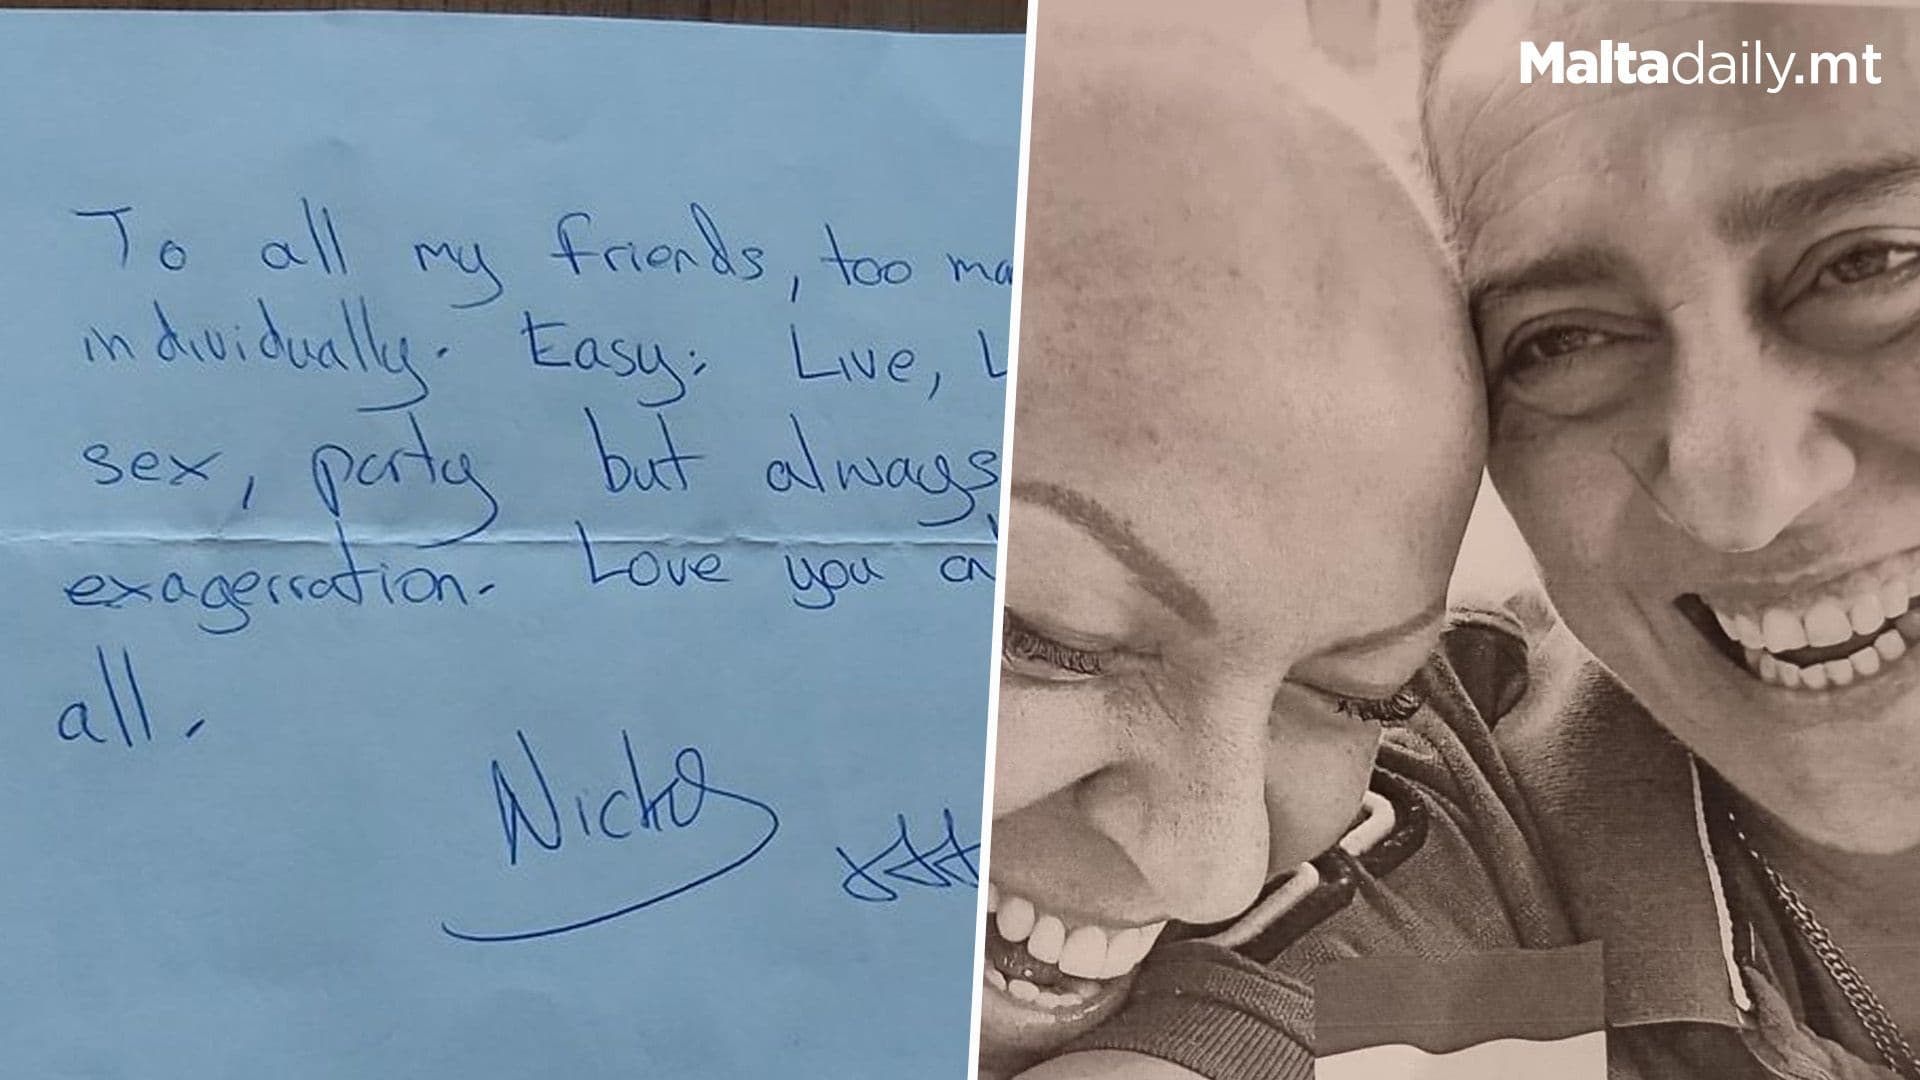 To all my friends, too ma
individually. Easy: Live, L
sex, party but always
exagerration. Love you a
all.
Nicky
xxx
Maltadaily.mt